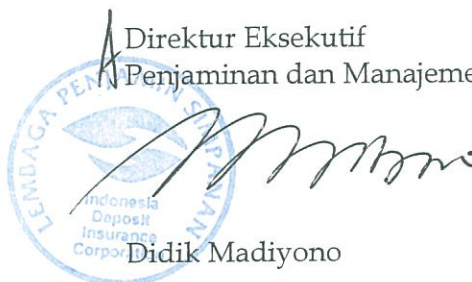 Direktur Eksekutif
Penjaminan dan Manajeme
LEMBAGA PENJAMIN SIMPANAN
Indonesia
Deposit
Insurance
Corporation
Didik Madiyono